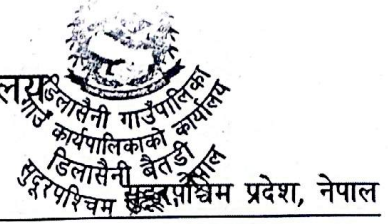 लय
डिलासैनी गाउँपालिका
गाउँ कार्यपालिकाको कार्यालय
डिलासैनी बैतडी
सुदूरपश्चिम प्रदेश, नेपाल
सुदूरपश्चिम प्रदेश, नेपाल